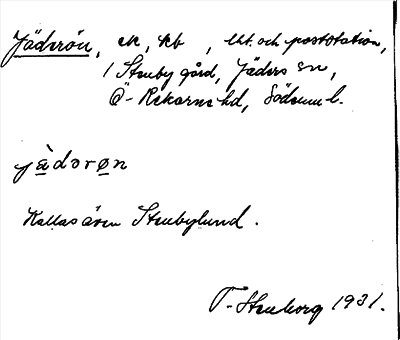 Jäderön, ek, kb, lht. och poststation,
/ Stenby gård, Jäders sn,
Ö-Rekarne hd, Södermanl.
jàdərøn
Kallas även Stenbylund.
T. Stenborg 1931.